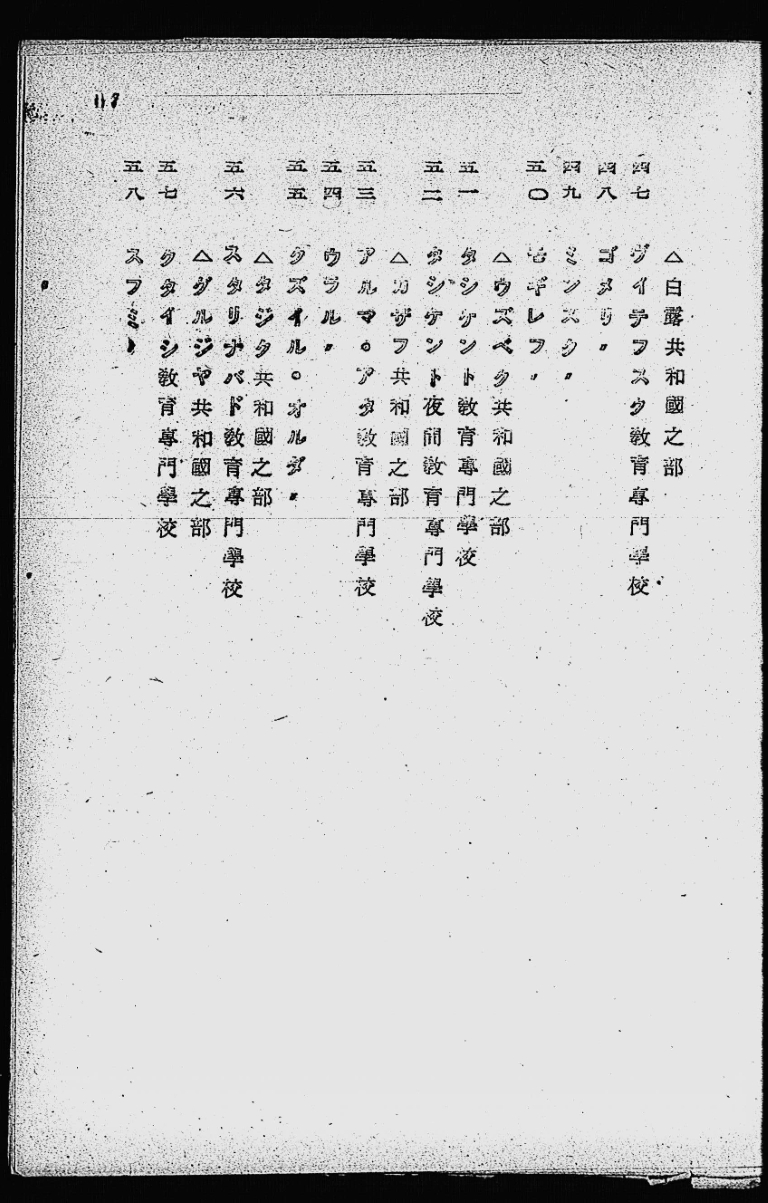 △白露共和國之部
四七 ヴイテフスク敎育專門學校
四八 ゴメリ〃
四九 ミンスク〃
五〇 モギレフ〃
△ウズベク共和國之部
五一 タシケント敎育專門學校
五二 タシケント夜間敎育專門學校
△カザフ共和國之部
五三 アルマ。アタ敎育專門學校
五四 ウラル〃
五五 クズイル。オルダ〃
△タジク共和國之部
五六 スタリナバド敎育專門學校
△グルジヤ共和國之部
五七 クタイシ敎育專門學校
五八 スフミ〃